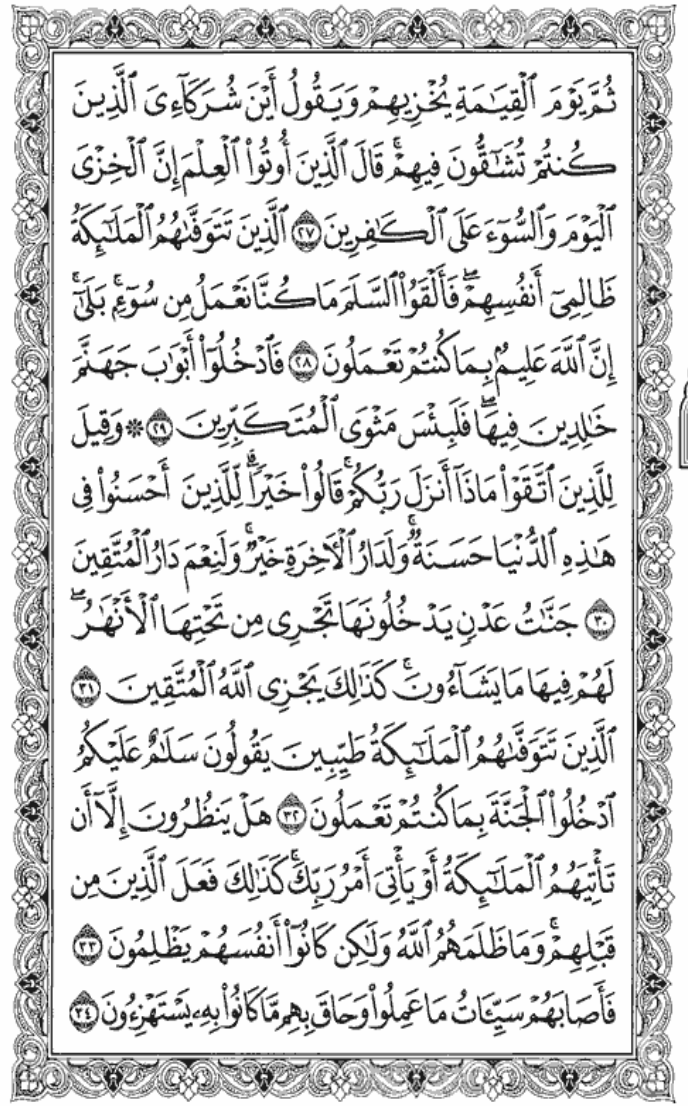 ثُمَّ يَوْمَ ٱلْقِيَـٰمَةِ يُخْزِيهِمْ وَيَقُولُ أَيْنَ شُرَكَآءِىَ ٱلَّذِينَ
كُنتُمْ تُشَـٰٓقُّونَ فِيهِمْ ۚ قَالَ ٱلَّذِينَ أُوتُوا۟ ٱلْعِلْمَ إِنَّ ٱلْخِزْىَ
ٱلْيَوْمَ وَٱلسُّوٓءَ عَلَى ٱلْكَـٰفِرِينَ ﴿٢٧﴾ ٱلَّذِينَ تَتَوَفَّىٰهُمُ ٱلْمَلَـٰٓئِكَةُ
ظَالِمِىٓ أَنفُسِهِمْ ۖ فَأَلْقَوُا۟ ٱلسَّلَمَ مَا كُنَّا نَعْمَلُ مِن سُوٓءٍۭ ۚ بَلَىٰٓ
إِنَّ ٱللَّهَ عَلِيمٌۢ بِمَا كُنتُمْ تَعْمَلُونَ ﴿٢٨﴾ فَٱدْخُلُوٓا۟ أَبْوَٰبَ جَهَنَّمَ
خَـٰلِدِينَ فِيهَا ۖ فَلَبِئْسَ مَثْوَى ٱلْمُتَكَبِّرِينَ ﴿٢٩﴾ ۞ وَقِيلَ
لِلَّذِينَ ٱتَّقَوْا۟ مَاذَآ أَنزَلَ رَبُّكُمْ ۚ قَالُوا۟ خَيْرًا ۗ لِّلَّذِينَ أَحْسَنُوا۟ فِى
هَـٰذِهِ ٱلدُّنْيَا حَسَنَةٌ ۚ وَلَدَارُ ٱلْـَٔاخِرَةِ خَيْرٌ ۚ وَلَنِعْمَ دَارُ ٱلْمُتَّقِينَ
﴿٣٠﴾ جَنَّـٰتُ عَدْنٍ يَدْخُلُونَهَا تَجْرِى مِن تَحْتِهَا ٱلْأَنْهَـٰرُ ۖ
لَهُمْ فِيهَا مَا يَشَآءُونَ ۚ كَذَٰلِكَ يَجْزِى ٱللَّهُ ٱلْمُتَّقِينَ ﴿٣١﴾
ٱلَّذِينَ تَتَوَفَّىٰهُمُ ٱلْمَلَـٰٓئِكَةُ طَيِّبِينَ يَقُولُونَ سَلَـٰمٌ عَلَيْكُمُ
ٱدْخُلُوا۟ ٱلْجَنَّةَ بِمَا كُنتُمْ تَعْمَلُونَ ﴿٣٢﴾ هَلْ يَنظُرُونَ إِلَّآ أَن
تَأْتِيَهُمُ ٱلْمَلَـٰٓئِكَةُ أَوْ يَأْتِىَ أَمْرُ رَبِّكَ ۚ كَذَٰلِكَ فَعَلَ ٱلَّذِينَ مِن
قَبْلِهِمْ ۚ وَمَا ظَلَمَهُمُ ٱللَّهُ وَلَـٰكِن كَانُوٓا۟ أَنفُسَهُمْ يَظْلِمُونَ ﴿٣٣﴾
فَأَصَابَهُمْ سَيِّـَٔاتُ مَا عَمِلُوا۟ وَحَاقَ بِهِم مَّا كَانُوا۟ بِهِۦ يَسْتَهْزِءُونَ ﴿٣٤﴾